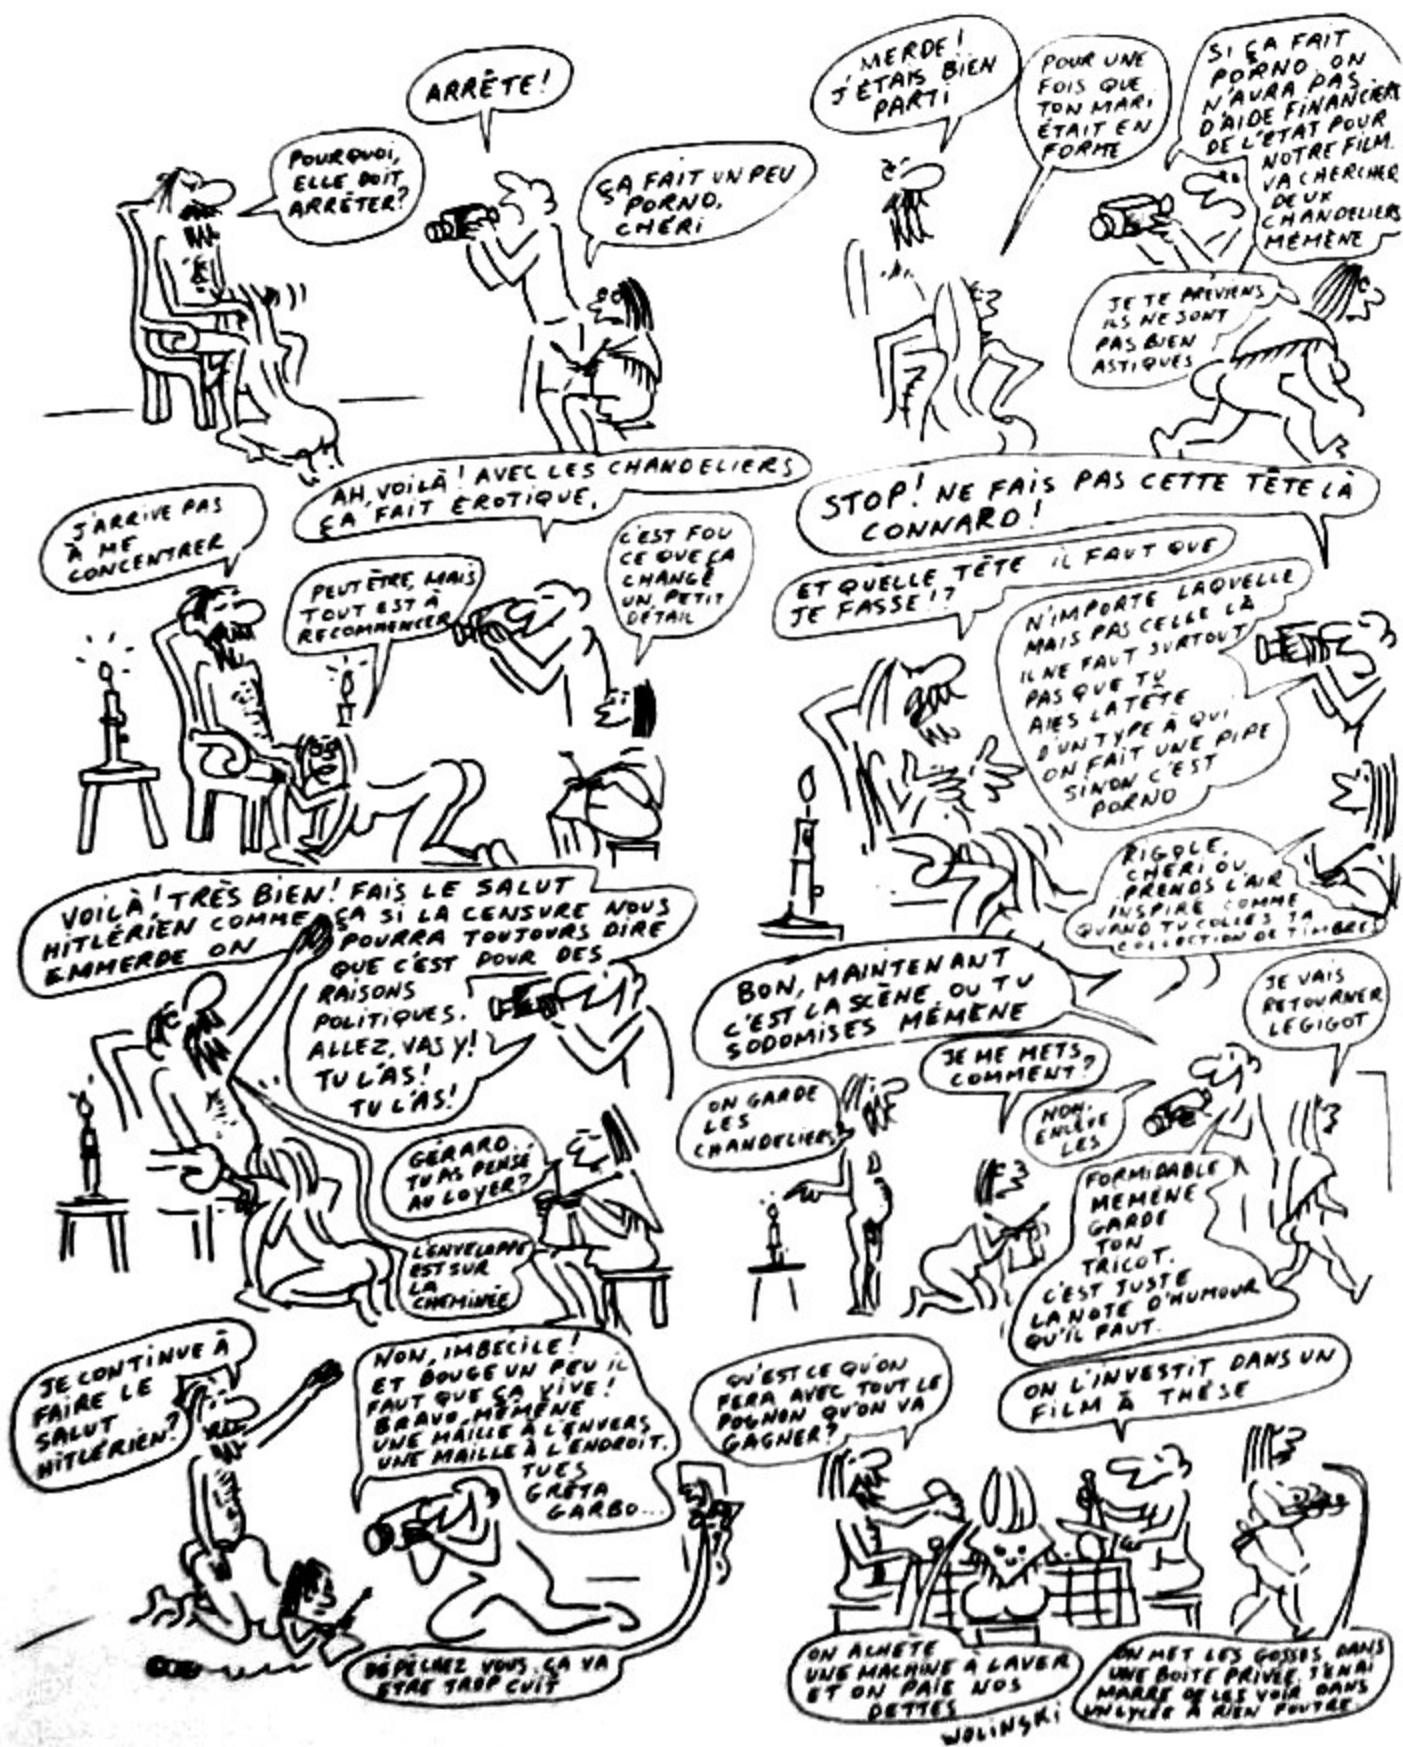 ARRÊTE!
POURQUOI,
ELLE DOIT
ARRÊTER?
ÇA FAIT UN PEU
PORNO,
CHÉRI
MERDE!
J'ÉTAIS BIEN
PARTI
POUR UNE
FOIS QUE
TON MARI
ÉTAIT EN
FORME
SI ÇA FAIT
PORNO, ON
N'AURA PAS
D'AIDE FINANCIÈRE
DE L'ÉTAT POUR
NOTRE FILM.
VA CHERCHER
DEUX
CHANDELIERS
MÉMÈNE
JE TE PREVIENS
ILS NE SONT
PAS BIEN
ASTIQUES
J'ARRIVE PAS
À ME
CONCENTRER
AH, VOILÀ! AVEC LES CHANDELIERS
ÇA FAIT ÉROTIQUE.
PEUT ÊTRE, MAIS
TOUT EST À
RECOMMENCER
C'EST FOU
CE QUE ÇA
CHANGE
UN PETIT
DÉTAIL
STOP! NE FAIS PAS CETTE TÊTE LÀ
CONNARD!
ET QUELLE TÊTE IL FAUT QUE
JE FASSE!?
N'IMPORTE LAQUELLE
MAIS PAS CELLE LÀ
IL NE FAUT SURTOUT
PAS QUE TU
AIES LA TÊTE
D'UN TYPE À QUI
ON FAIT UNE PIPE
SINON C'EST
PORNO
RIGOLE,
CHÉRI OU
PRENDS L'AIR
INSPIRÉ COMME
QUAND TU COLLES TA
COLLECTION DE TIMBRES
VOILÀ! TRÈS BIEN! FAIS LE SALUT
HITLÉRIEN COMME ÇA SI LA CENSURE NOUS
EMMERDE ON POURRA TOUJOURS DIRE
QUE C'EST POUR DES
RAISONS
POLITIQUES.
ALLEZ, VAS Y!
TU L'AS!
TU L'AS!
GÉRARD..
TU AS PENSÉ
AU LOYER?
L'ENVELOPPE
EST SUR
LA
CHEMINÉE
BON, MAINTENANT
C'EST LA SCÈNE OU TU
SODOMISES MÉMÈNE
JE ME METS
COMMENT?
ON GARDE
LES
CHANDELIERS
NON,
ENLÈVE
LES
JE VAIS
RETOURNER
LE GIGOT
FORMIDABLE
MEMÈNE
GARDE
TON
TRICOT.
C'EST JUSTE
LA NOTE D'HUMOUR
QU'IL FAUT.
JE CONTINUE À
FAIRE LE
SALUT
HITLÉRIEN?
NON, IMBÉCILE!
ET BOUGE UN PEU IL
FAUT QUE ÇA VIVE!
BRAVO, MÉMÈNE
UNE MAILLE À L'ENVERS
UNE MAILLE À L'ENDROIT.
TU ES
GRÉTA
GARBO...
DÉPÊCHEZ VOUS ÇA VA
ÊTRE TROP CUIT
QU'EST CE QU'ON
FERA AVEC TOUT LE
POGNON QU'ON VA
GAGNER?
ON L'INVESTIT DANS UN
FILM À THÈSE
ON ACHÈTE
UNE MACHINE À LAVER
ET ON PAIE NOS
DETTES
ON MET LES GOSSES DANS
UNE BOITE PRIVÉE, J'EN AI
MARRE DE LES VOIR DANS
UN LYCÉE À RIEN FOUTRE.
WOLINSKI